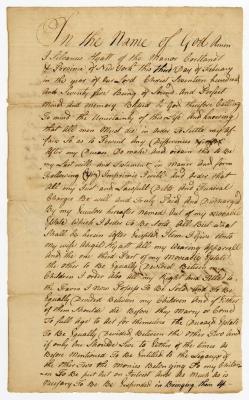 In the Name of God Amen
I Silvanus Hyatt of the Manor Cortlandt
& Province of New York This third Day of February
in the year of our Lord Christ Seventeen hundred
and Seventy five Being of Sound and Perfect
Mind and Memory Blessed be God therefore Calling
To mind the Uncertainty of this Life and knowing
that all men Must die in order To Settle my af
fairs So as To Prevent Any Differences
after my Decease Do make and ordain this to be
my Last will and Testament in Manner and form
following Imprimis I will and order that
all my Just and Lawfull Debts and Funeral
Charges Be well and Truly Paid and Discharged
By my Executors herafter Named out of my moveable
Estate which I Leave To the World
Shall be herein after Excepted Item I Give Unto
my wife Abigel Hyatt all my Wearing Apparrell
and the one third Part of my Moveable Estate
the other to Be Equally Devided Between my
Children I order also all my Right and Title to
the Farm I now Posess To Be Sold and To Be
Equally Devided Between my Children and if Either
of them Should die Before they Marry or Come
To full age to act for themselves the Deceased Estate
To Be Equally Devided Between the other Two and
if only one Should Live To Either of the times as
Before Mentioned To Be Entitled to the Legacys of
the other Two the monies Belonging To my Children
To Be put out on Interest and So Much as is
Necessary To Be Expended in Bringing them up